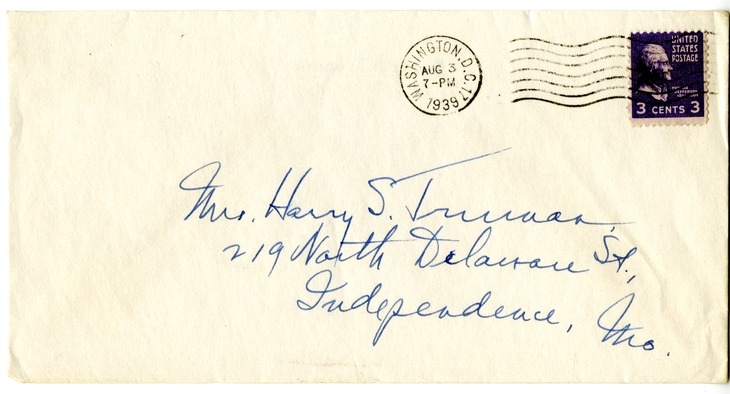 WASHINGTON, D.C. 17.
AUG 3
7-PM
1939
UNITED
STATES
POSTAGE
3 CENTS 3
Mrs. Harry S. Truman,
219 North Delaware St.,
Independence, Mo.